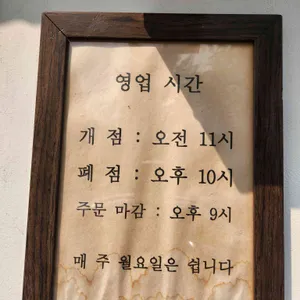 영업 시간
개 점 : 오전 11시
폐 점 : 오후 10시
주문 마감 : 오후 9시
매 주 월요일은 쉽니다